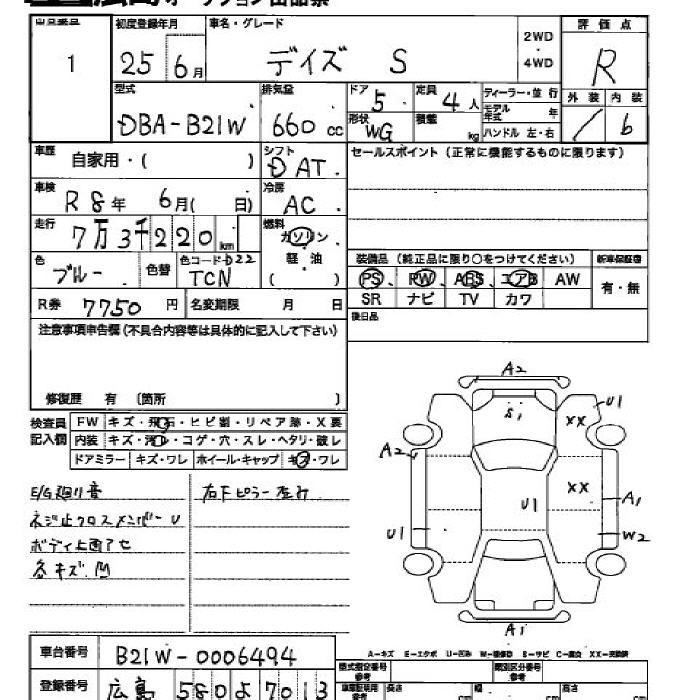 出品番号 初度登録年月 車名・グレード 2WD ・ 4WD 評価点
1 25年6月 デイズ S R
型式 排気量 ドア 定員 ディーラー・並行 外装 内装
DBA-B21W 660cc 5 4人 モデル年式 年 / 6
形状 WG 積載 kg ハンドル 左・右
車歴 自家用・( ) シフト DAT セールスポイント(正常に機能するものに限ります)
車検 R8年 6月( 日) 冷房 AC
走行 7万3千220km 燃料 ガソリン 軽油 ( )
色 ブルー 色替 色コード D22 TCN 装備品(純正品に限り○をつけてください) 新車保証書
PS、PW、ABS、エアB AW 有・無
R券 7750円 名変期限 月 日 SR ナビ TV カワ
後日品
注意事項申告欄(不具合内容等は具体的に記入して下さい)
修復歴 有 〔箇所 〕
検査員記入欄 FW キズ・飛石・ヒビ割・リペア跡・X要
内装 キズ・汚レ・コゲ・穴・スレ・ヘタリ・破レ
ドアミラー キズ・ワレ ホイール・キャップ キズ・ワレ
E/G廻り音 右Fピラー歪み
ネジ止クロスメンバーU
ボディ上面アセ
各キズ.凹
A2
S1 XX U1
A2
XX A1
U1
U1 W2
A1
A-キズ E-エクボ U-凹み W-補修跡 S-サビ C-腐食 XX-交換済
車台番号 B21W-0006494 型式指定番号 類別区分番号
登録番号 広島 580 よ 7013 長さ cm 幅 cm 高さ cm